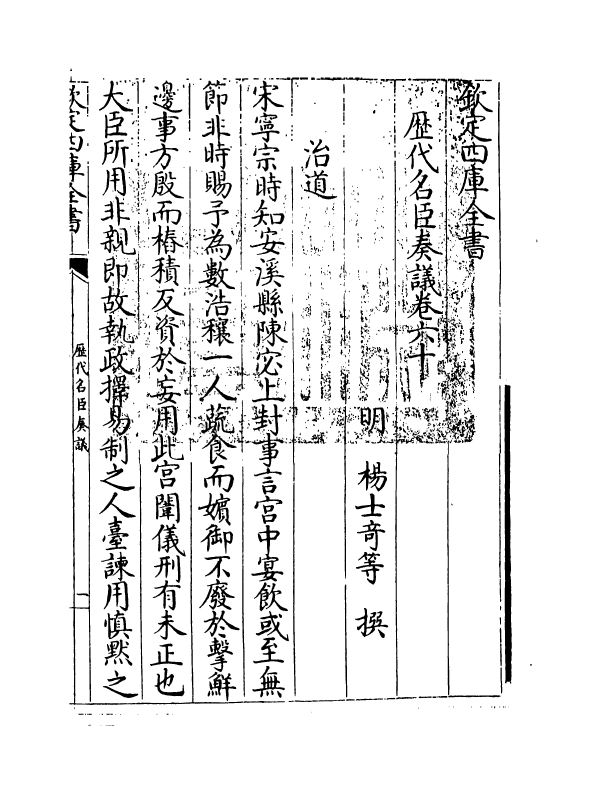 欽定四庫全書
歴代名臣奏議卷六十
明　楊士竒等　撰
治道
宋寧宗時知安溪縣陳宓上封事言宫中宴飲或至無
節非時賜予為數浩穰一人蔬食而嬪御不廢於擊鮮
邊事方殷而樁積反資於妄用此宫闈儀刑有未正也
大臣所用非親即故執政擇易制之人臺諫用慎黙之
欽定四庫全書
歴代名臣奏議
一